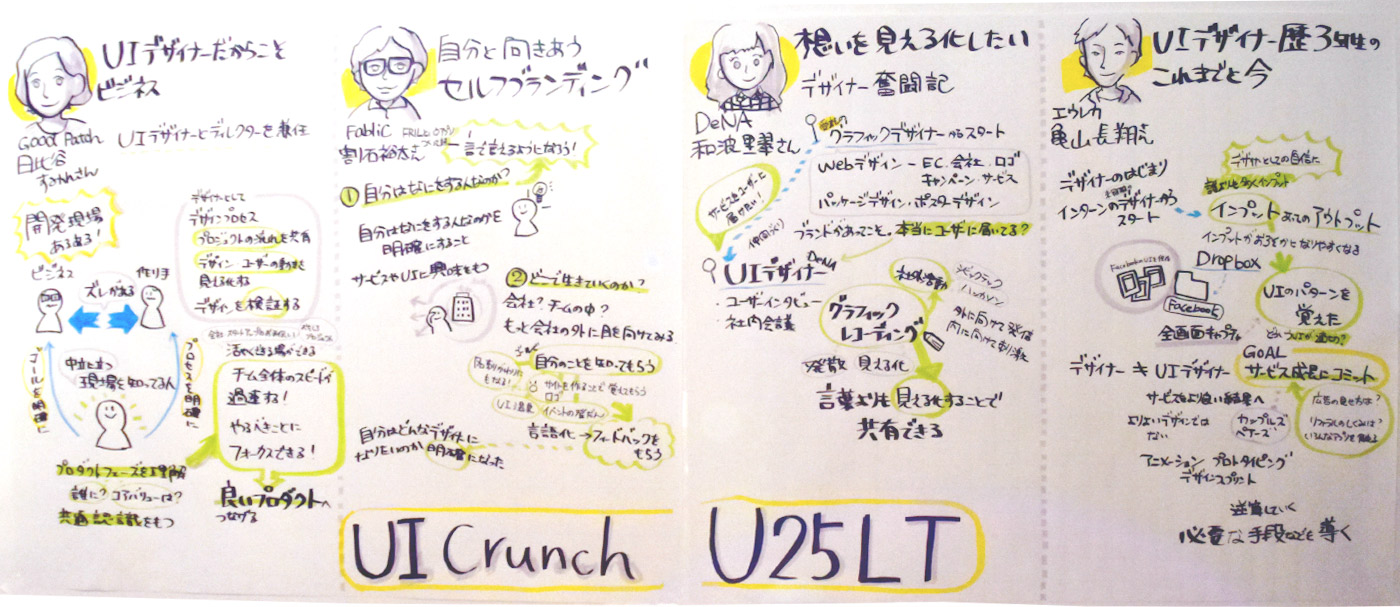 UIデザイナーだからこそ
ビジネス
Good Patch
日比谷
すみかんさん
UIデザイナーとディレクターを兼任
開発現場
あるある!
ビジネス
作り手
ズレがある
ゴールを明確に
プロセスを明確に
中立に立つ
現場を知ってる人
プロダクトフェーズを理解
誰に? コアバリューは?
共通認識をもつ
デザイナーとして
デザインプロセス
プロジェクトの流れを共有
デザイン ユーザーの動きを
見える化する
デザインを検証する
活やくできる場ができる
チーム全体のスピードが
過速ね!
やるべきことに
フォーカスできる!
良いプロダクトへ
つながる
自分と向きあう
セルフブランディング
Fablic
割石裕太さん
一言で言えるようになろう!
① 自分はなにをする人なのか?
自分はなにをする人なのかを
明確にすること
サービスやUIに興味をもつ
② どこで生きていくのか?
会社? チームの中?
もっと会社の外に目を向けてみる
自分のことを知ってもらう
サイトを作ることで覚えてもらう
ロゴ
UI温泉
イベントの登だん
言語化→フィードバックを
もらう
自分はどんなデザイナーに
なりたいのか明確になった
UI Crunch
想いを見える化したい
デザイナー奮闘記
DeNA
和波里翠さん
グラフィックデザイナーからスタート
Webデザイン – EC.会社.ロゴ
キャンペーン・サービス
パッケージデザイン・ポスターデザイン
サービスをユーザーに
届けたい!
仲間づくり
ブランドがあってこそ。本当にユーザーに届いてる?
UIデザイナー DeNA
・ユーザーインタビュー
・社内会議
社外活動
グラフィック
レコーディング
外に向けて発信
内に向けて刺激
発散 見える化
言葉よりも見える化することで
共有できる
U25LT
UIデザイナー歴3年生の
これまでと今
エウレカ
亀山長翔さん
デザイナーのはじまり
インターンのデザイナーから
スタート
デザイナーとしての自信に
誰よりも多くインプット
インプットあってのアウトプット
インプットがおろそかになりやすくなる
Dropbox
Facebook
全画面キャプチャ
UIのパターンを
覚えた
どういうUIが適切?
デザイナー ≠ UIデザイナー
GOAL
サービス成長にコミット
サービスをより良い結果へ
よりよいデザインでは
ない
カップルズ
ペアーズ
広告の見せ方は?
アニメーション プロトタイピング
デザインスプリント
逆算していく
必要な手段などを導く